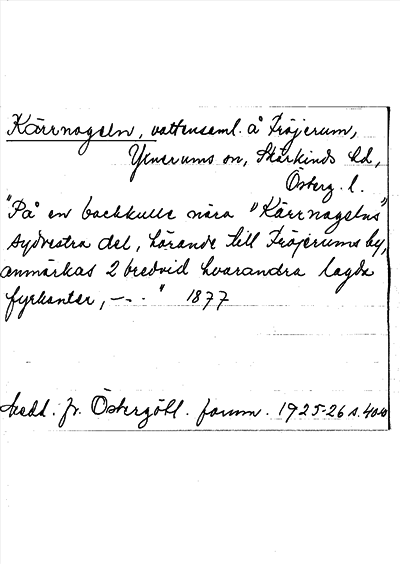 Kärrnageln, vattensaml. å Fröjerum,
Yxnerums sn, Skärkinds hd,
Österg. l.
"På en backkulle nära "Kärrnagelns"
sydvestra del, hörande till Fröjerums by,
anmärkas 2 bredvid hvarandra lagda
fyrkanter, –. ." 1877
Medd. fr. Östergötl. fornm. 1925-26 s. 400